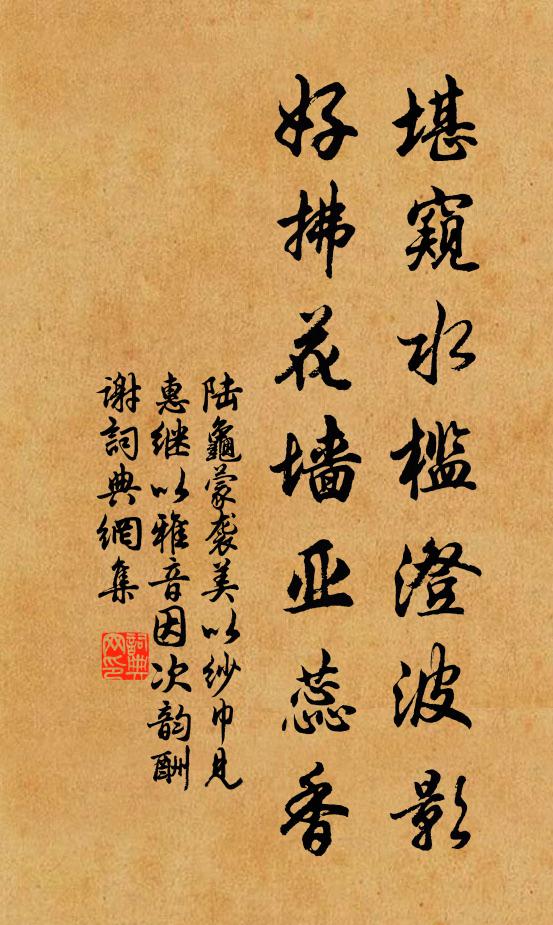 堪窥水槛澄波影
好拂花墙亚蕊香
陆龜蒙袭美以纱巾见
惠继以雅音因次韵酬
谢詞典網集
詞典
网印